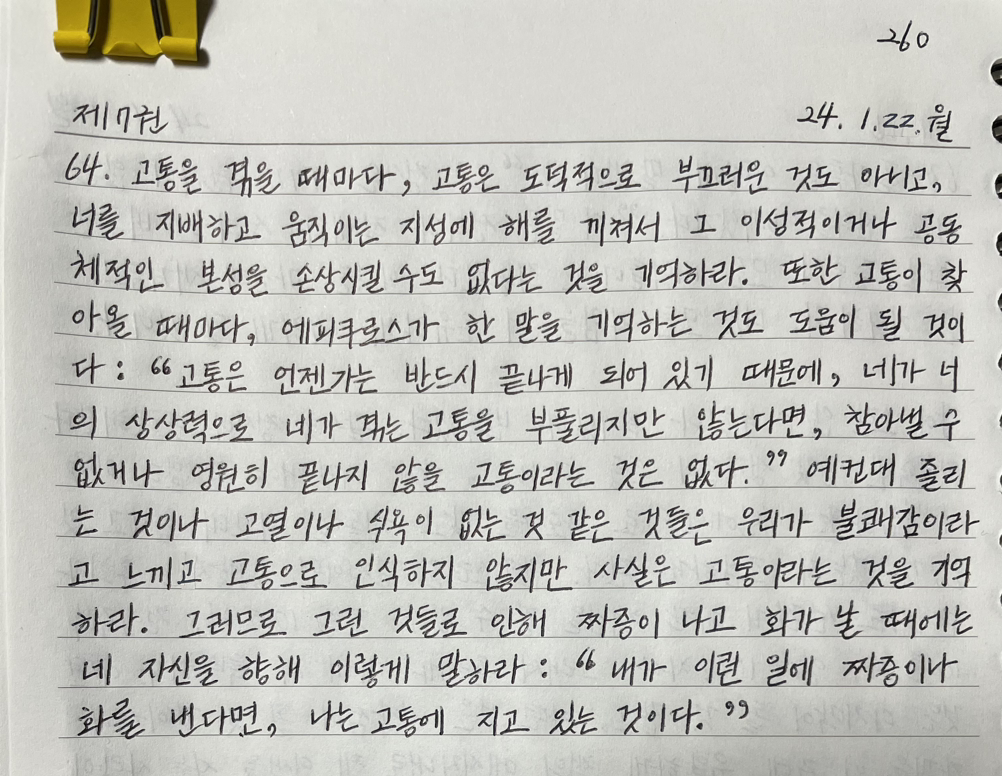 260
제7권 24. 1. 22. 월
64. 고통을 겪을 때마다, 고통은 도덕적으로 부끄러운 것도 아니고,
너를 지배하고 움직이는 지성에 해를 끼쳐서 그 이성적이거나 공동
체적인 본성을 손상시킬 수도 없다는 것을 기억하라. 또한 고통이 찾
아올 때마다, 에피쿠로스가 한 말을 기억하는 것도 도움이 될 것이
다 : “고통은 언젠가는 반드시 끝나게 되어 있기 때문에, 네가 너
의 상상력으로 네가 겪는 고통을 부풀리지만 않는다면, 참아낼 수
없거나 영원히 끝나지 않을 고통이라는 것은 없다.” 예컨대 졸리
는 것이나 고열이나 식욕이 없는 것 같은 것들은 우리가 불쾌감이라
고 느끼고 고통으로 인식하지 않지만 사실은 고통이라는 것을 기억
하라. 그러므로 그런 것들로 인해 짜증이 나고 화가 날 때에는
네 자신을 향해 이렇게 말하라 : “내가 이런 일에 짜증이나
화를 낸다면, 나는 고통에 지고 있는 것이다.”